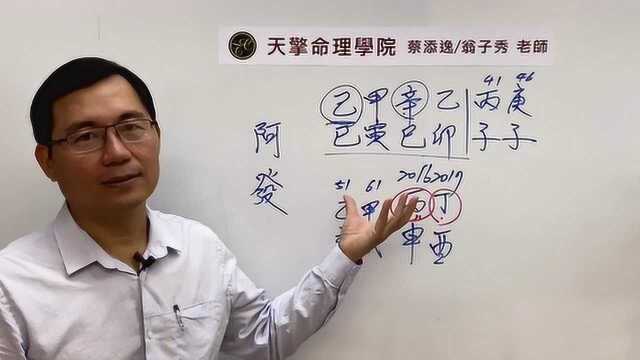 天擎命理學院 蔡添逸/翁子秀 老師
41 46
己 甲 辛 乙 丙 庚
巳 寅 巳 卯 子 子
阿發
51 61 2016 2017
甲 丁
申 酉